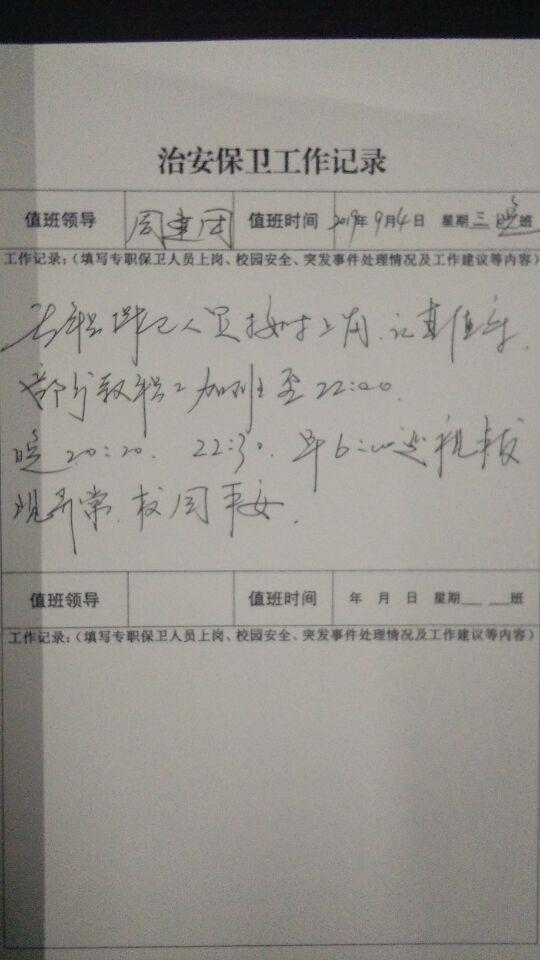 治安保卫工作记录
值班领导 周建团 值班时间 2019年9月4日 星期三 晚班
工作记录：（填写专职保卫人员上岗、校园安全、突发事件处理情况及工作建议等内容）
专职保卫人员按时上岗、认真值守，
部分教职工加班至22:00.
晚20:20. 22:30. 早6:00巡视校
异常，校园平安.
值班领导 值班时间 年 月 日 星期 班
工作记录：（填写专职保卫人员上岗、校园安全、突发事件处理情况及工作建议等内容）